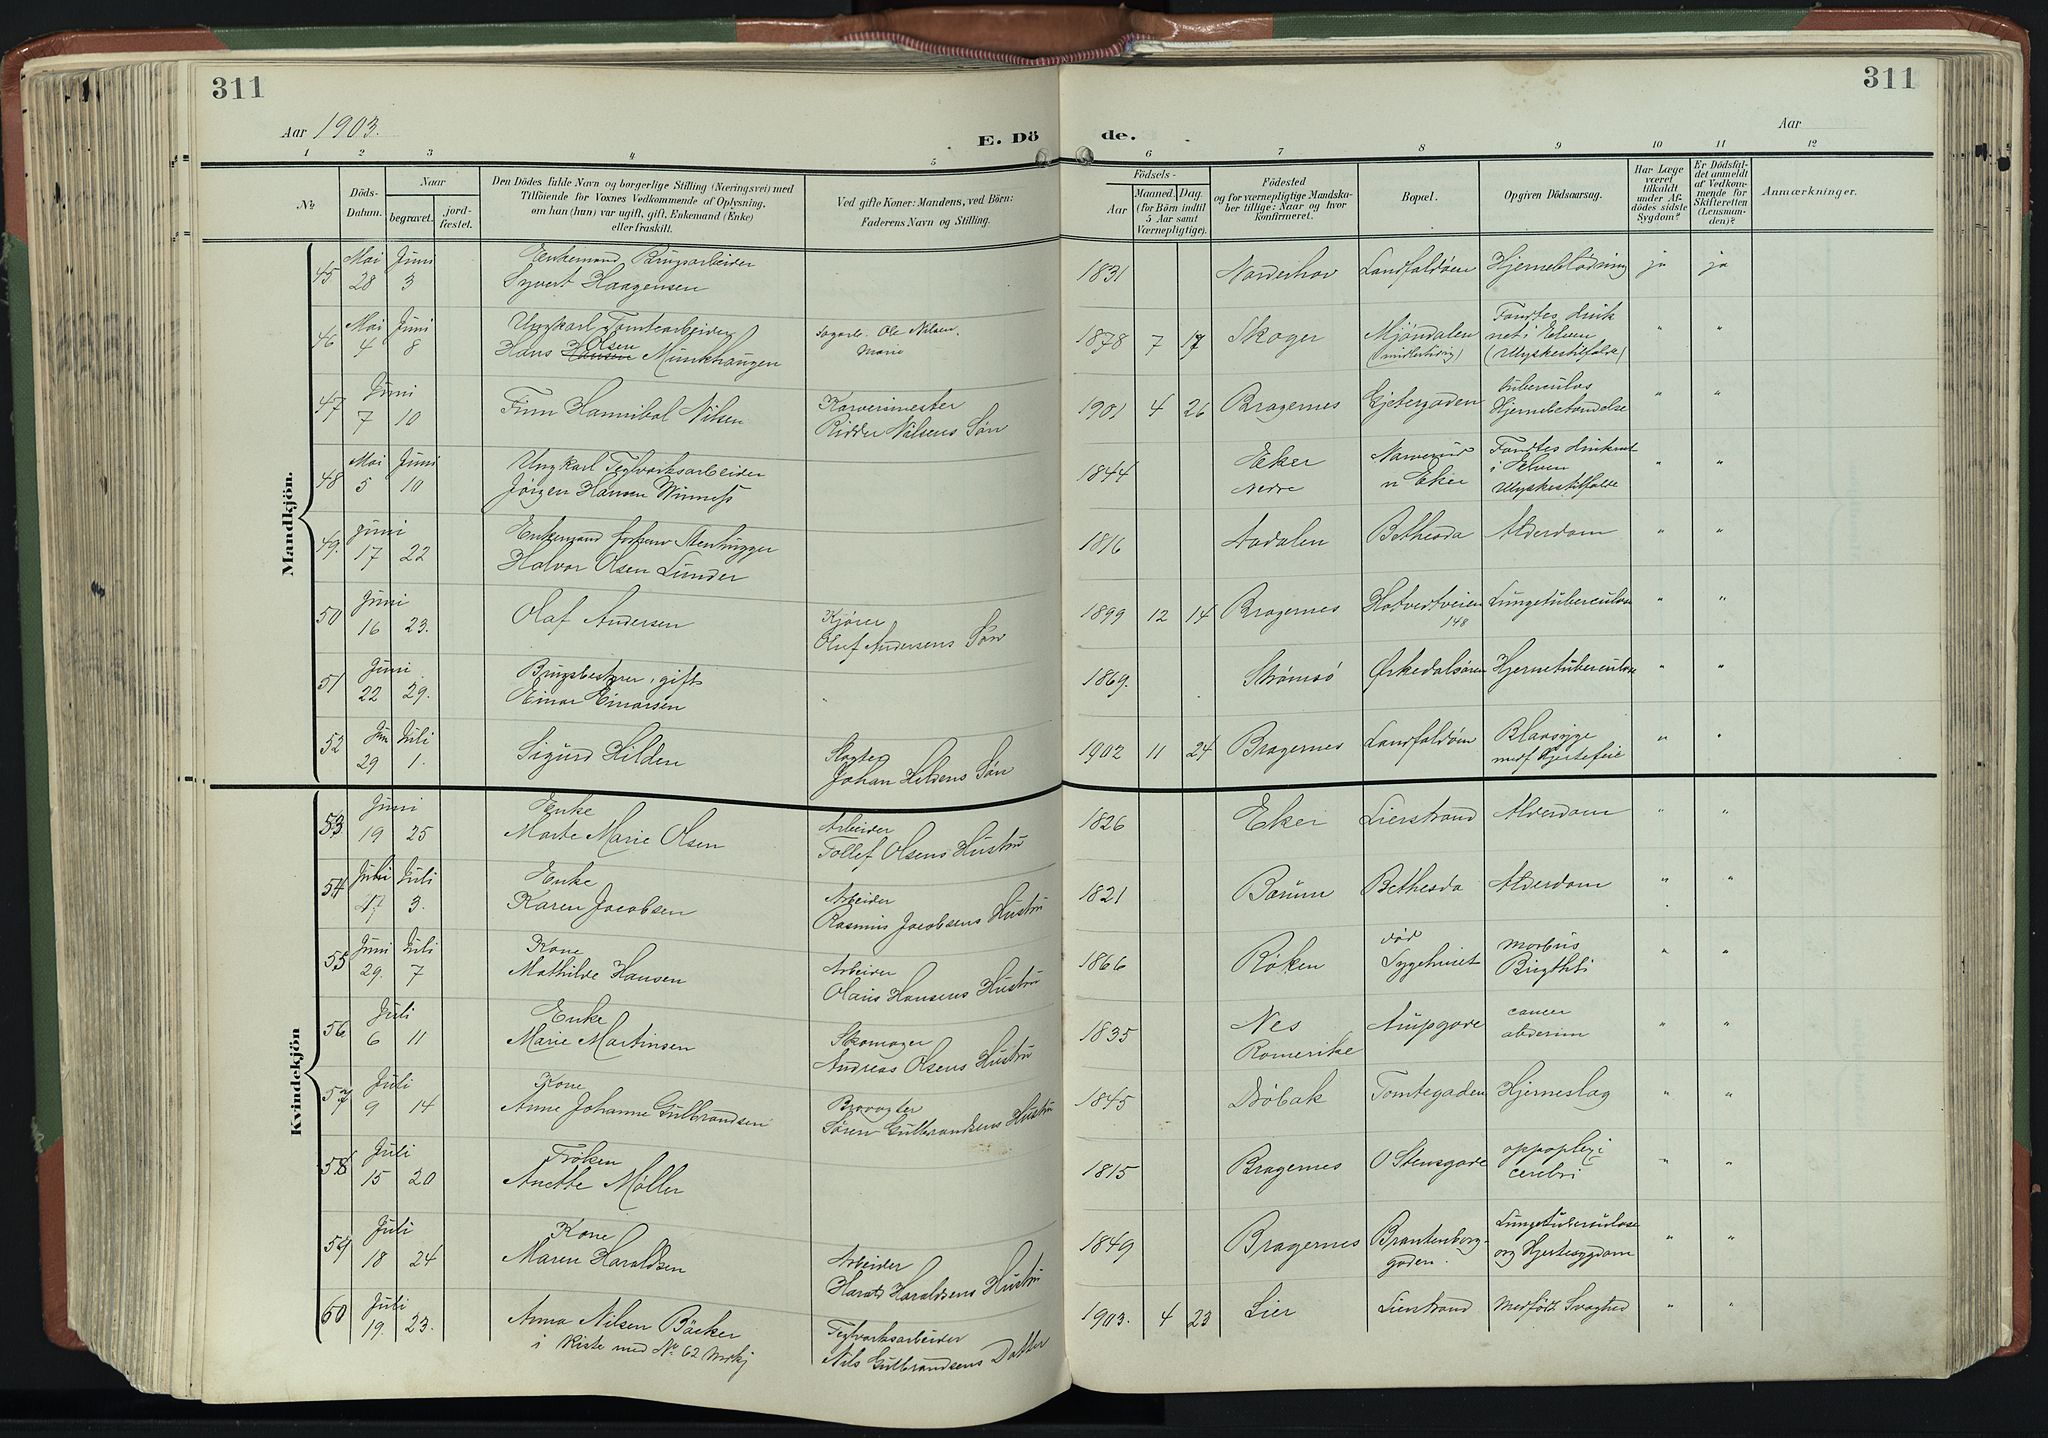 311
311
Aar 1903.
E. Dö
de.
Aar
1 2 3 4 5 6 7 8 9 10 11 12
No
Döds-
Datum.
Naar
begravet.
jord-
fæstet.
Den Dödes fulde Navn og borgerlige Stilling (Næringsvei) med
Tilföiende for Voxnes Vedkommende af Oplysning,
om han (hun) var ugift, gift, Enkemand (Enke)
eller fraskilt.
Ved gifte Koner: Mandens, ved Börn:
Faderens Navn og Stilling.
Födsels-
Aar
Maaned. Dag.
(for Börn indtil
5 Aar samt
Værnepligtige).
Födested
og for værnepligtige Mandska-
ber tillige: Naar og hvor
konfirmeret.
Bopæl.
Opgiven Dödsaarsag.
Har Læge
været
tilkaldt
under Af-
dödes sidste
Sygdom?
Er Dödsfal-
det anmeldt
af Vedkom-
mende for
Skifteretten
(Lensman-
den)?
Anmærkninger.
Mandkjön.
45 Mai Juni Enkemand, Brugsarbeider
28 3 Syvert Haagensen 1831 Norderhov Landfaldøen Hjerneblødning ja ja
46 Mai Juni Ungkarl Tomtearbeider Sagarb. Ole Nilsen. Fandtes druk
4 8 Hans Hansen Olsen Munkhaugen Marie 1878 7 17 Skoger Mjøndalen net i Elven " "
(midlertidig) (Ulykkestilfælde)
47 Juni Finn Hannibal Nilsen Karversmester tuberculøs
7 10 Ridder Nilsens Søn 1901 4 26 Bragernes Gjetergaden Hjernebetændelse " "
48 Mai Juni Ungkarl Teglværksarbeider Eker Fandtes druknet
5 10 Jørgen Hansen 1844 Nedre n Eker i Elven " "
Ulykkestilfælde
49. Juni Enkemand Stenhugger
17 22 Halvor Olsen Lunder 1816 Aadalen Bethesda Alderdom " "
50 Juni Olaf Andersen Kjører
16 23. Oluf Andersens Søn 1899 12 14 Bragernes Hotvedtveien Lungetuberculose " "
148
51 Juni Brugsbestyrer, gift
22 29. Einar Einarsen " 1869. Strømsø Ørkedalsøren Hjernetuberculose " "
52 Jun Juli Sigurd Hilden Slagter Blaasyge
29 1. Johan Hildens Søn 1902 11 24 Bragernes Landfaldøen med Hjertefeil " "
Kvindekjön
53 Juni Enke Arbeider
19 25 Marte Marie Olsen Tollef Olsens Hustru 1826 Eker Lierstrand Alderdom " "
54 Juli Juli Enke Arbeider
3. Karen Jacobsen Rasmus Jacobsens Hustru 1821 Bærum Bethesda Alderdom " "
55 Juni Juli Kone Arbeider død morbus
29. 7 Mathilde Hansen Olaus Hansens Hustru 1866 Røken Sygehuset Brigthti " "
56 Juli Enke Skomager Nes cancer
6 11 Marie Martinsen Andreas Olsens Hustru 1835 Romerike Amtpgade abderim " "
57 Juli Kone Brovogter
9 14 Anne Johanne Gulbrandsen Søren Gulbrandsens Hustru 1845 Drøbak Tomtegaden Hjerneslag " "
58 Juli Frøken oppoplexi
15 20 Anette Møller 1815 Bragernes O Stensgade cerebri " "
59 Juli Kone Arbeider Lungetuberculose
18 24 Maren Haraldsen Harald Haraldsens Hustru 1849 Bragernes Brantenborg- og Hjertesygdom " "
gaden.
60 Juli Anna Nilsen Bäcker Teglværksarbeider
19. 23. i Kiste med No 62 Nils Gulbrandsens Datter 1903. 4 23 Lier Lierstrand Medfødt Svaghed " "